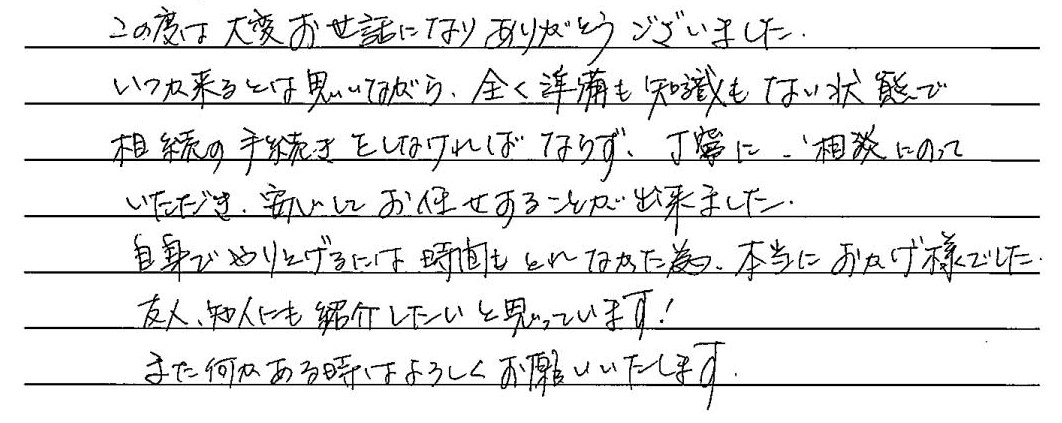 この度は大変お世話になりありがとうございました.
いつか来るとは思いながら、全く準備も知識もない状態で
相続の手続きをしなければならず、丁寧にご相談にのって
いただき、安心してお任せすることが出来ました.
自身でやりとげるには時間もとれなかった為、本当におかげ様でした.
友人、知人にも紹介したいと思っています!
また何かある時はよろしくお願いいたします.